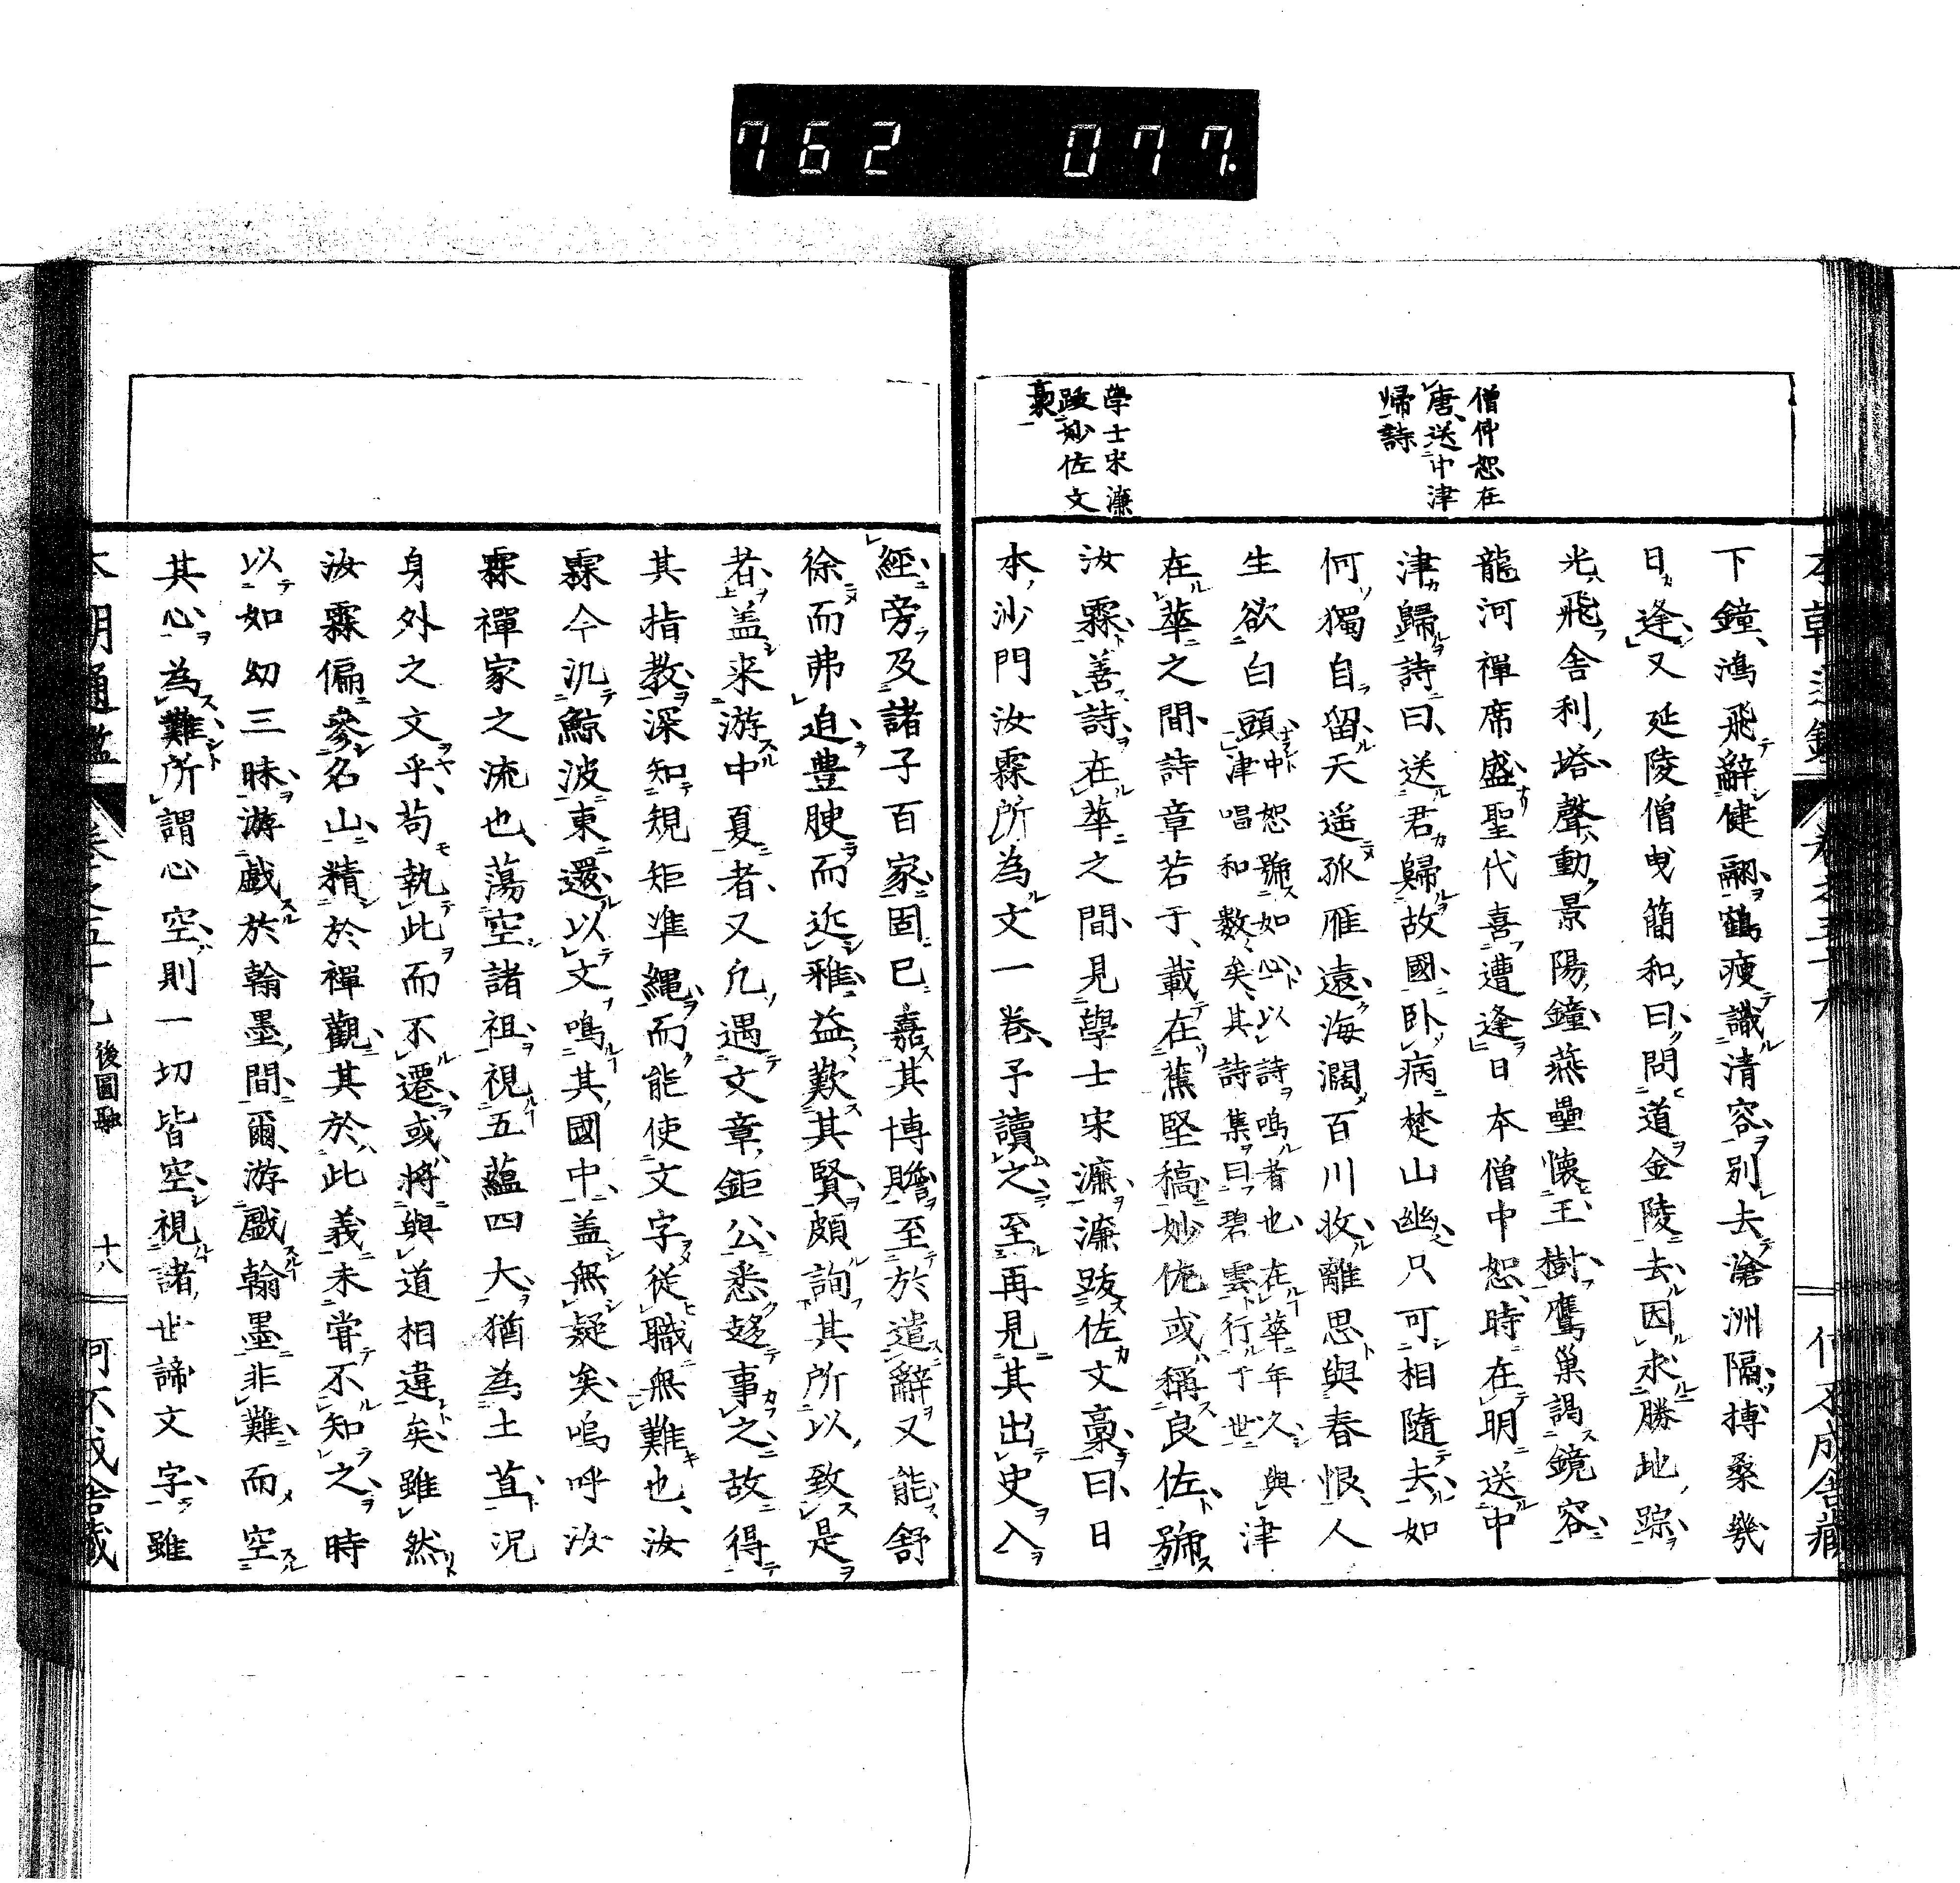 762 077.
僧仲恕在
唐送中津
歸詩
學士宋濂
跋妙佐文
稾
下鐘鴻飛辭健翮鶴瘦識清容別去滄洲隔搏桑幾
日逢又延陵僧曳簡和曰問道金陵去因求勝地踪
光飛舍利塔聲動景陽鐘燕壘懷王樹鷹巢謁鏡容
龍河禪席盛聖代喜遭逢日本僧中恕時在明送中
津歸詩曰送君歸故國臥病楚山幽只可相隨去如
何獨自留天遥孤雁遠海濶百川收離思與春恨人
生欲白頭中恕號如心以詩鳴者也在華年久與津
津唱和數矣其詩集曰碧雲行于世
在華之間詩章若于載在蕉堅稿妙佐或稱良佐號
汝霖善詩在華之間見學士宋濂濂跋佐文稾曰日
本沙門汝霖所為文一卷予讀之至再見其出史入
經旁及諸子百家固已嘉其博贍至於遣辭又能舒
徐而弗迫豊腴而近雅益歎其賢頗詢其所以致是
者盖来游中夏者又凡遇文章鉅公悉趍事之故得
其指教深知規矩準繩而能使文字從職無難也汝
霖今汎鯨波東還以文鳴其國中盖無疑矣嗚呼汝
霖禪家之流也蕩空諸祖視五蘊四大猶為土苴况
身外之文乎苟執此而不遷或將與道相違矣雖然
汝霖偏參名山精於禪觀其於此義未甞不知之時
以如幻三昧游戲於翰墨間爾游戲翰墨非難而空
其心為難所謂心空則一切皆空視諸世諦文字雖
本朝通鑑 卷之五十九 後圓融 十八 何不成舎藏